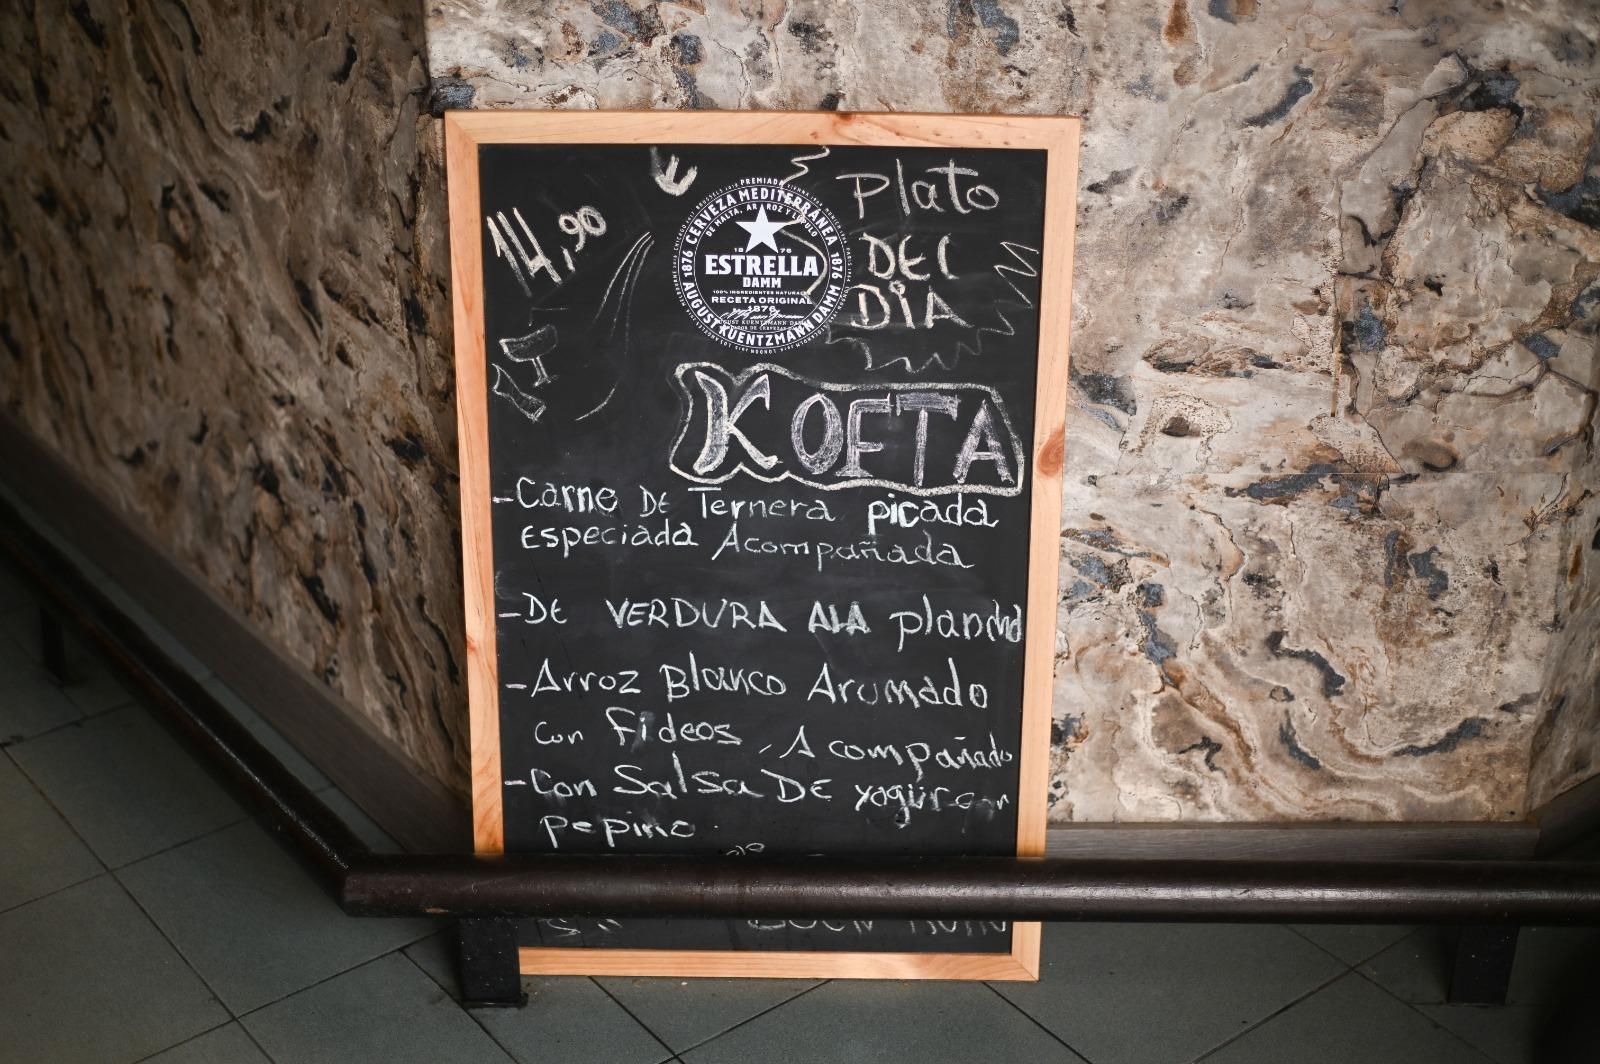 14,90
Plato
DEL
DIA
PREMIADA
CERVEZA MEDITERRÁNEA
DE MALTA, ARROZ Y LÚPULO
1876 1876
ESTRELLA
DAMM
100% INGREDIENTES NATURALES
RECETA ORIGINAL
1876
AUGUST KUENTZMANN DAMM
KOFTA
-Carne DE Ternera picada
Especiada Acompañada
-DE VERDURA ALA plancha
-Arroz Blanco Arumado
con Fideos, Acompañado
-Con Salsa DE yogür con
pepino.